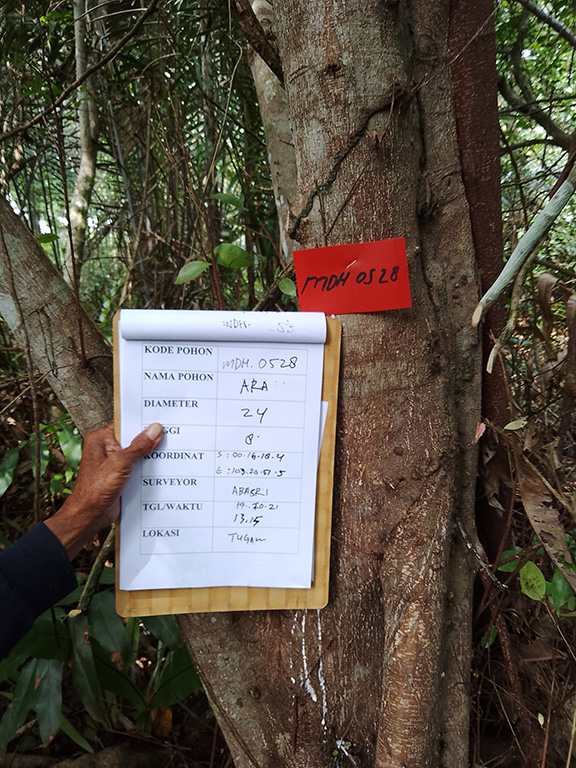 MDH 0528
KODE POHON MDH. 0528
NAMA POHON ARA
DIAMETER 24
GGI 8
KOORDINAT S : 00.16.18.4
E : 103.20.51.5
SURVEYOR ABASRI
TGL/WAKTU 19.10.21
13,15
LOKASI TUGAU